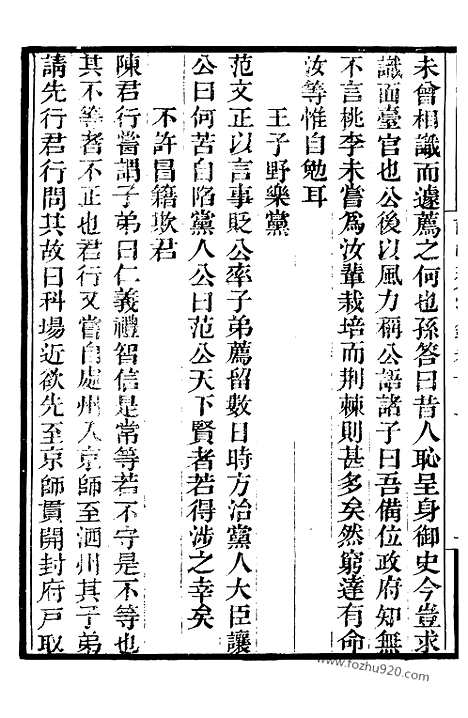 未曾相識而遽薦之何也孫答曰昔人恥呈身御史今豈求
識面臺官也公後以風力稱公語諸子曰吾備位政府知無
不言桃李未嘗為汝輩栽培而荆棘則甚多矣然窮達有命
汝等惟自勉耳
王子野樂黨
范文正以言事貶公率子弟薦留數日時方治黨人大臣讓
公曰何苦自陷黨人公曰范公天下賢者若得涉之幸矣
不許冒籍欺君
陳君行嘗謂子弟曰仁義禮智信是常等若不守是不等也
其不等者不正也君行又嘗自處州入京師至泗州其子弟
請先行君行問其故曰科場近欲先至京師貫開封府戶取
www.fozhu920.com